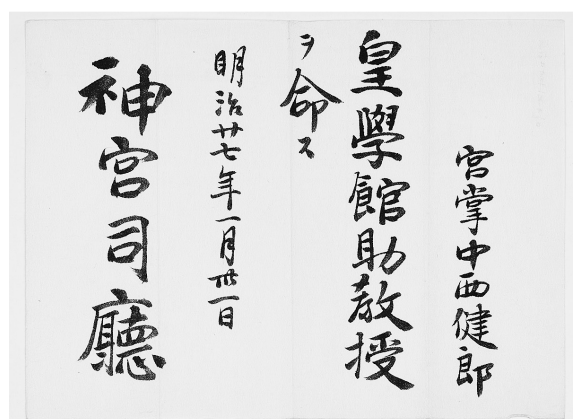 宮掌中西健郎
皇學館助教授
ヲ命ス
明治廿七年一月卅一日
神宮司廳